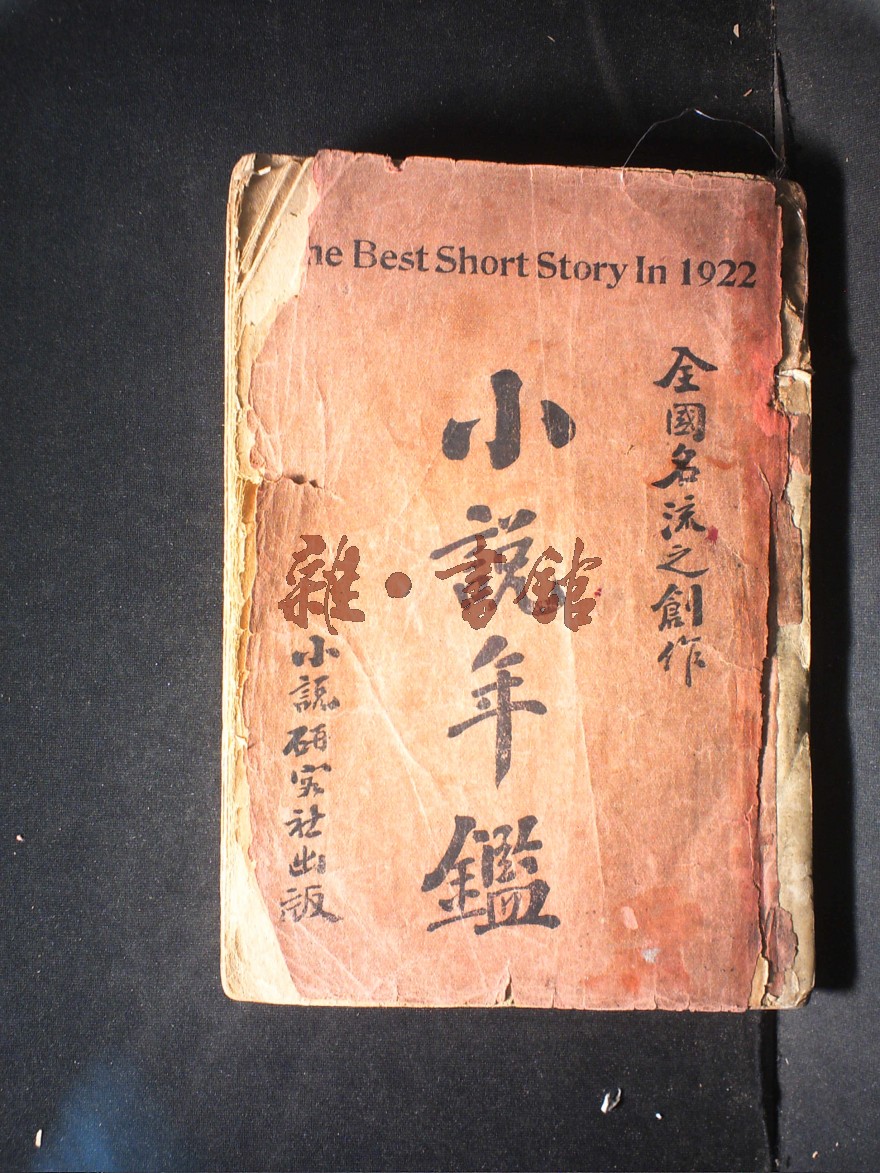 he Best Short Story In 1922
全國名流之創作
小說年鑑
小說研究社出版
雜·書館